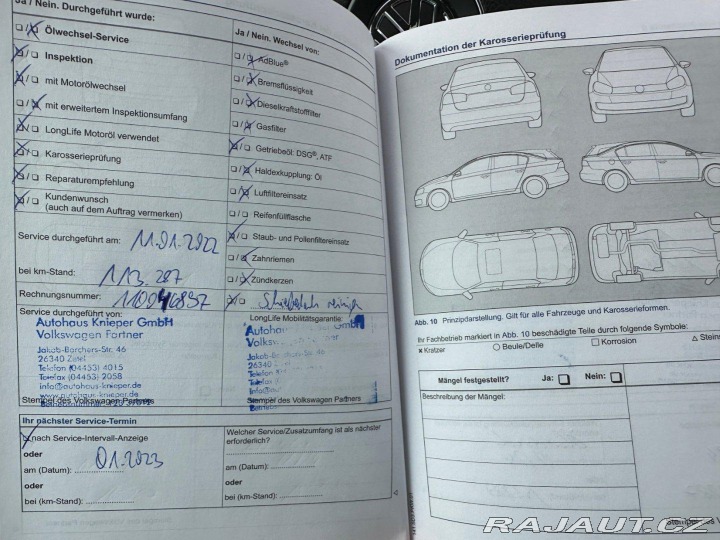 Ja / Nein. Durchgeführt wurde:
Ölwechsel-Service
Inspektion
mit Motorölwechsel
mit erweitertem Inspektionsumfang
LongLife Motoröl verwendet
Karosserieprüfung
Reparaturempfehlung
Kundenwunsch
(auch auf dem Auftrag vermerken)
Service durchgeführt am: 11.01.2022
bei km-Stand: 113.287
Rechnungsnummer:
Service durchgeführt von:
Autohaus Knieper GmbH
Volkswagen Partner
Jakob-Borchers-Str. 46
26340 Zetel
Telefon (04453) 4015
Telefax (04453) 2058
info@autohaus-knieper.de
www.autohaus-knieper.de
Stempel des Volkswagen Partners
Ja / Nein. Wechsel von:
AdBlue®
Bremsflüssigkeit
Dieselkraftstofffilter
Gasfilter
Getriebeöl: DSG®, ATF
Haldexkupplung: Öl
Luftfiltereinsatz
Reifenfüllflasche
Staub- und Pollenfiltereinsatz
Zahnriemen
Zündkerzen
LongLife Mobilitätsgarantie:
Stempel des Volkswagen Partners
Ihr nächster Service-Termin
nach Service-Intervall-Anzeige
oder 01.2023
am (Datum):
oder
bei (km-Stand):
Welcher Service/Zusatzumfang ist als nächster
erforderlich?
am (Datum):
oder
bei (km-Stand):
Dokumentation der Karosserieprüfung
Abb. 10 Prinzipdarstellung. Gilt für alle Fahrzeuge und Karosserieformen.
Ihr Fachbetrieb markiert in Abb. 10 beschädigte Teile durch folgende Symbole:
× Kratzer ○ Beule/Delle □ Korrosion △ Stein
Mängel festgestellt? Ja: □ Nein: □
Beschreibung der Mängel:
RAJAUT.CZ